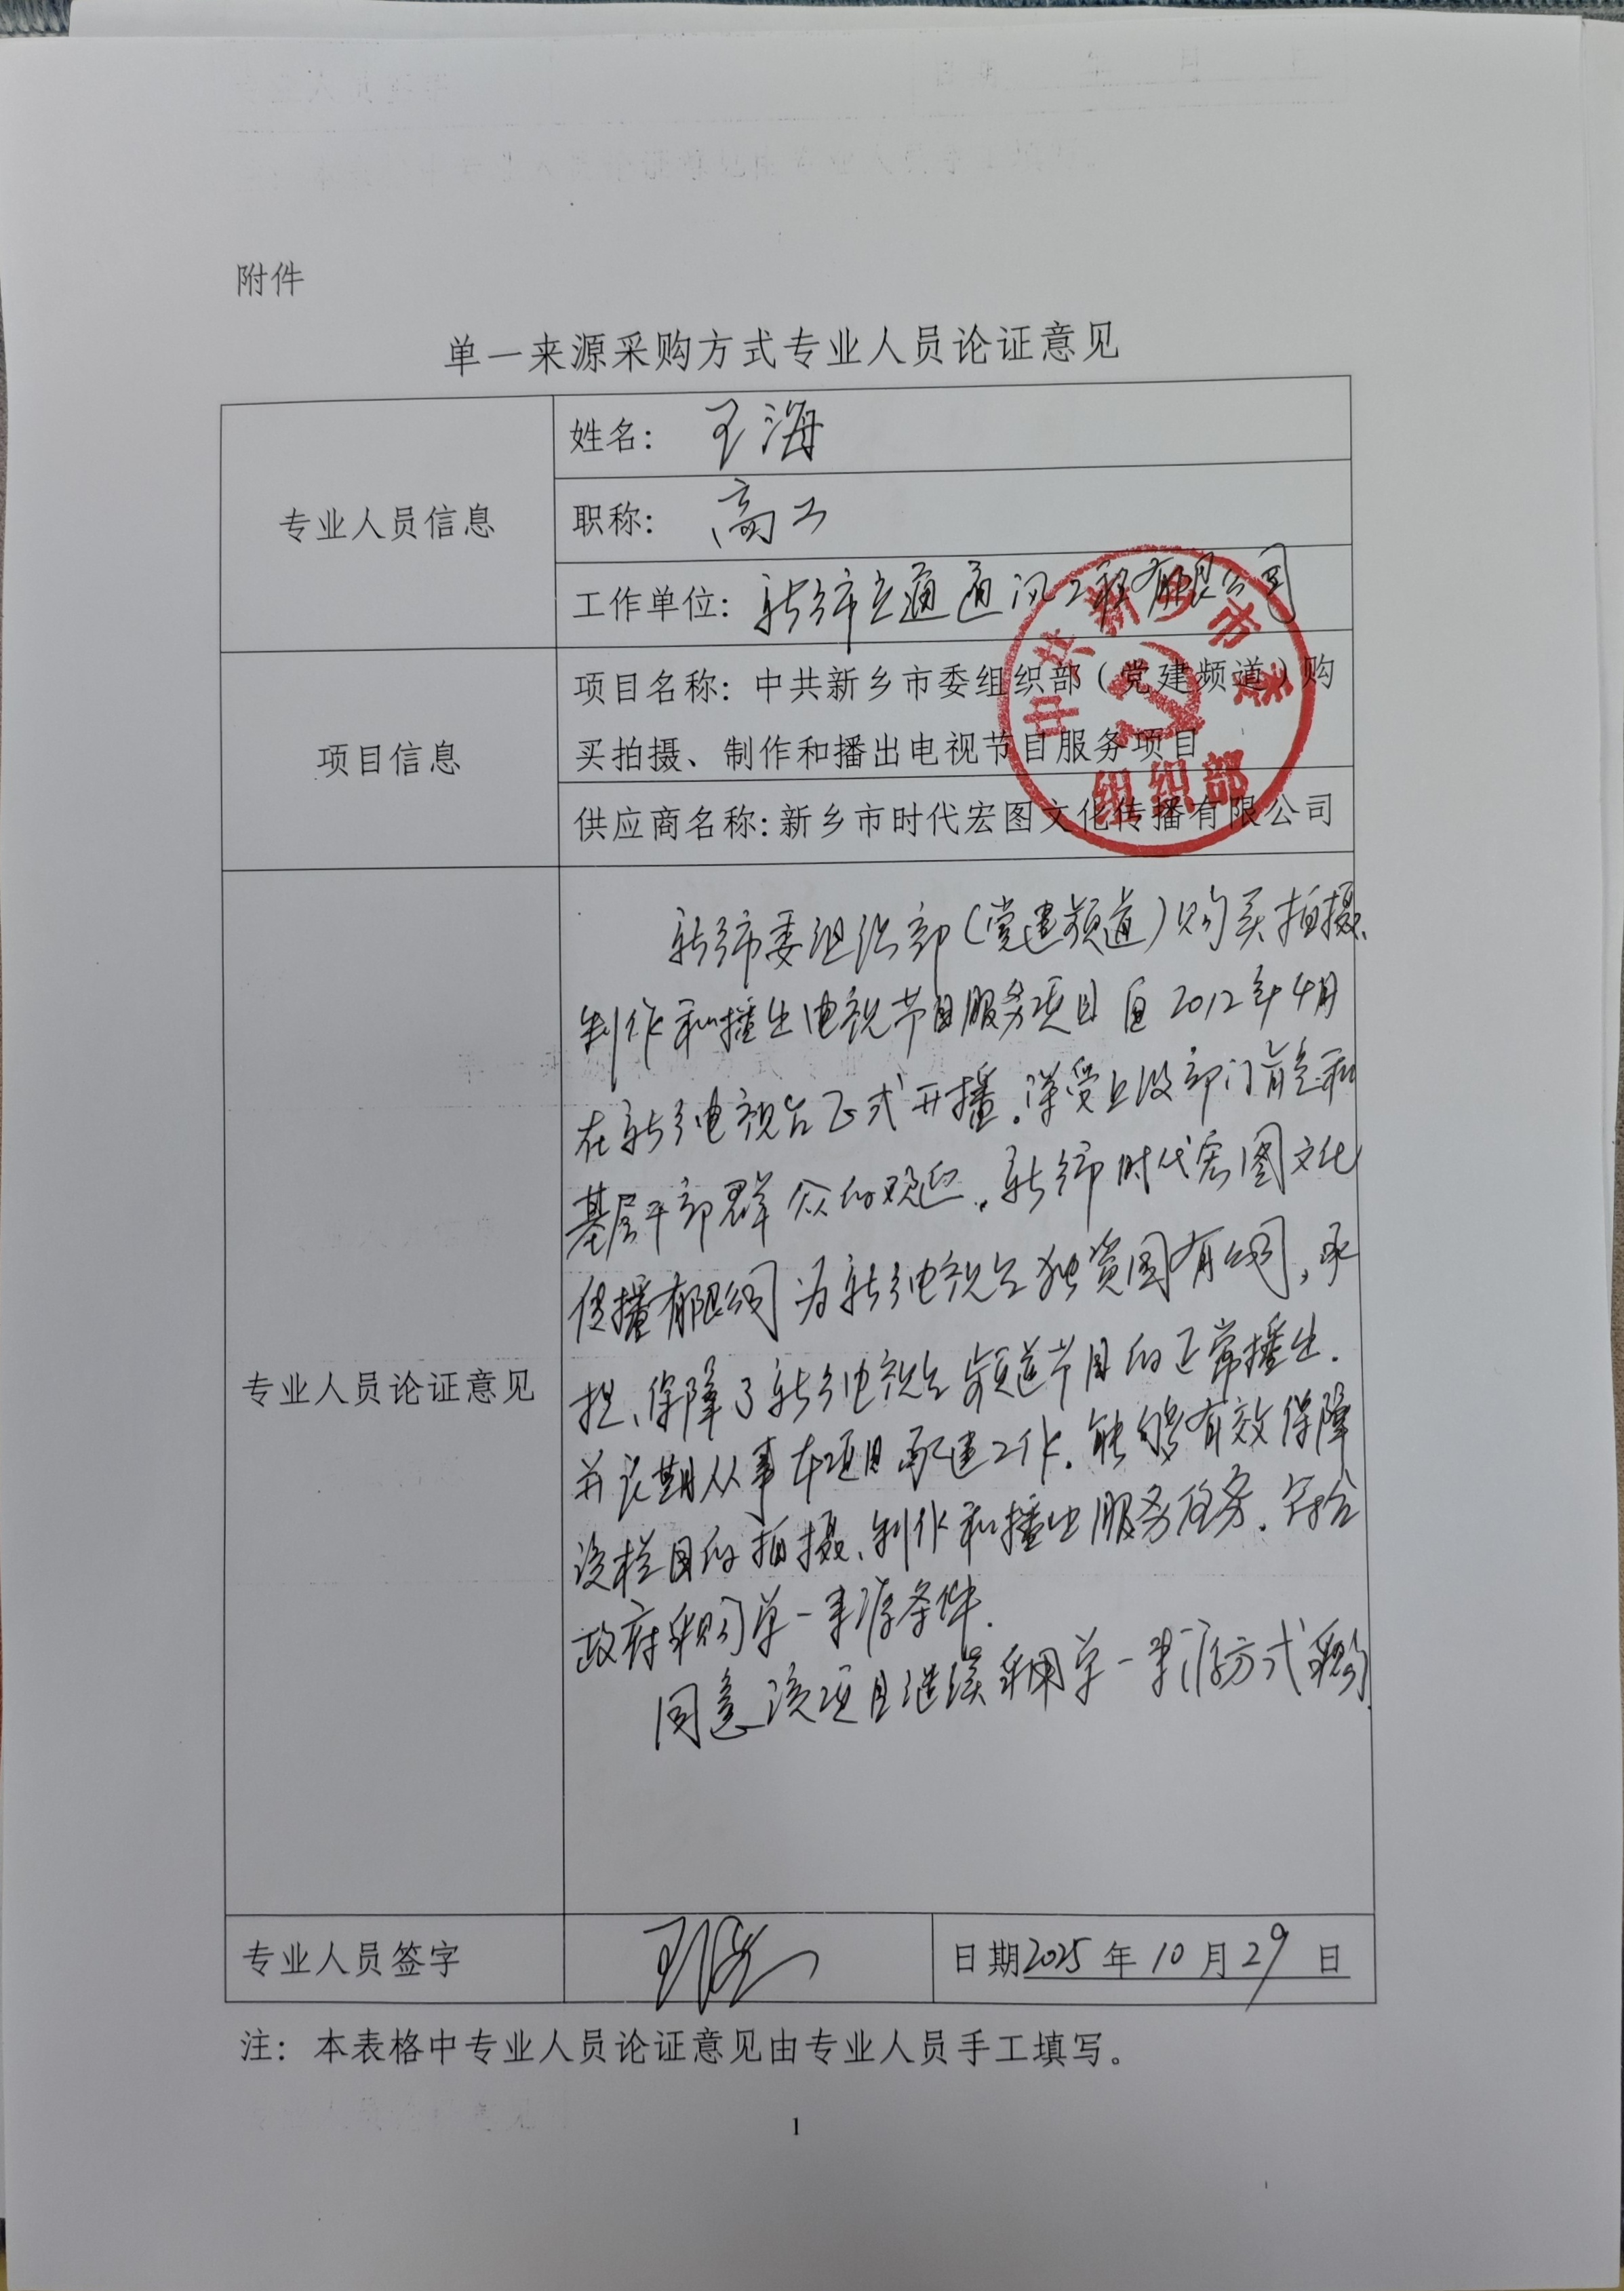 附件
单一来源采购方式专业人员论证意见
专业人员信息
姓名：王海
职称：高工
工作单位：新乡市立通通讯工程有限公司
项目信息
项目名称：中共新乡市委组织部（党建频道）购
买拍摄、制作和播出电视节目服务项目
供应商名称：新乡市时代宏图文化传播有限公司
中共新乡市委
组织部
专业人员论证意见
新乡市委组织部（党建频道）购买拍摄、
制作和播出电视节目服务项目自2012年4月
在新乡电视台正式开播，深受上级部门肯定和
基层干部群众的欢迎。新乡市时代宏图文化
传播有限公司为新乡电视台独资国有公司，承
担、保障了新乡电视台频道节目的正常播出。
并长期从事本项目承建工作，能够有效保障
该栏目的拍摄、制作和播出服务任务，符合
政府采购单一来源条件。
同意该项目继续采用单一来源方式采购
专业人员签字
王海
日期2025年10月29日
注：本表格中专业人员论证意见由专业人员手工填写。
1